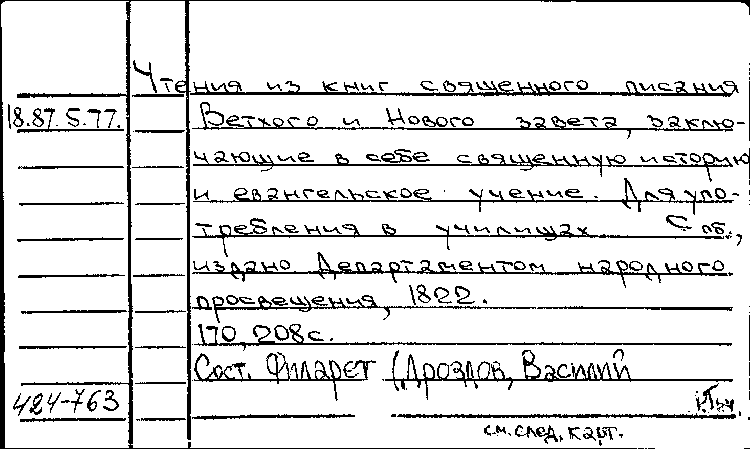 Чтения из книг священного писания
18.87.5.77. Ветхого и Нового завета, заклю-
чающие в себе священную историю
и евангельское учение. Для упо-
требления в училищах. Спб.,
издано Департаментом народного
просвещения, 1822.
170, 208 с.
Сост. Филарет (Дроздов, Василий
424-763
см. след. карт.